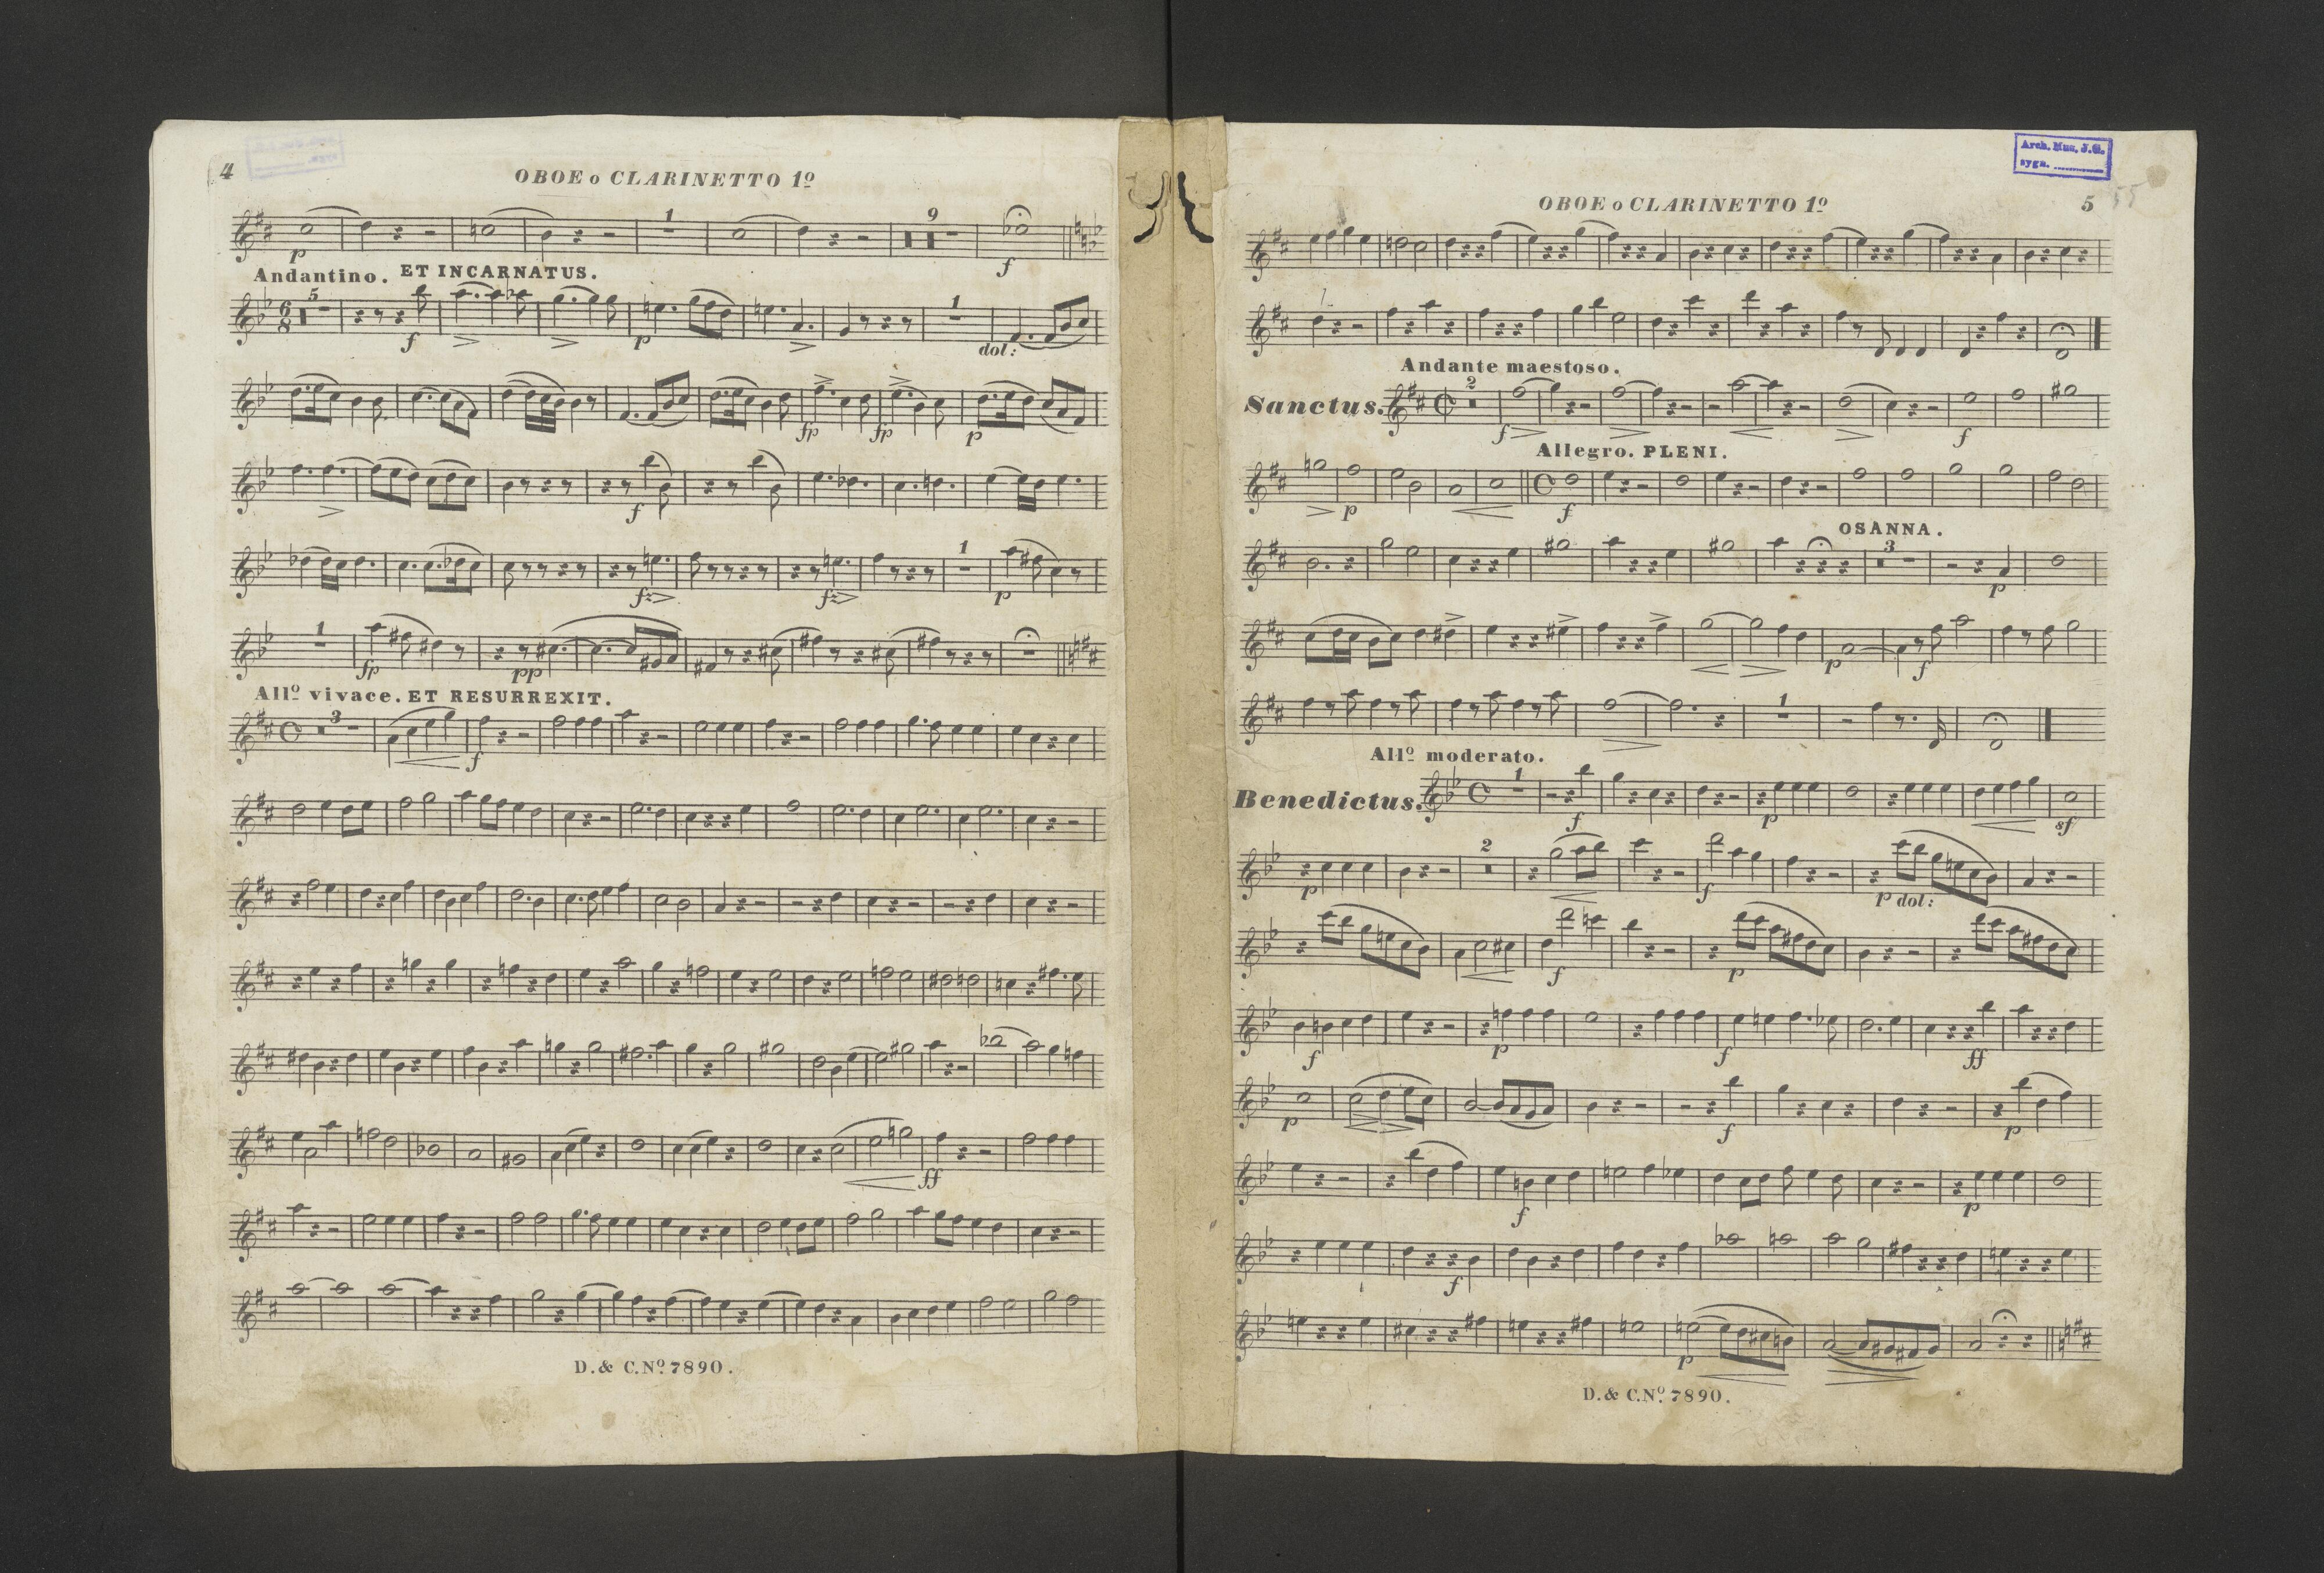 4
OBOE o CLARINETTO 1º
p
1
9
f
Andantino. ET INCARNATUS.
5
f
p
1
dol:
fp
fp
p
f
fz
fz
1
p
1
fp
pp
Allº vivace. ET RESURREXIT.
3
f
ff
D. & C. Nº 7890.
Arch. Muz. J.G.
sygn.
OBOE o CLARINETTO 1º
5
55
Andante maestoso.
Sanctus.
2
f
f
Allegro. PLENI.
p
f
OSANNA.
3
p
p
f
1
Allº moderato.
Benedictus.
1
f
p
sf
p
2
f
p dol:
f
p
f
p
f
ff
p
f
p
f
p
f
p
D. & C. Nº 7890.